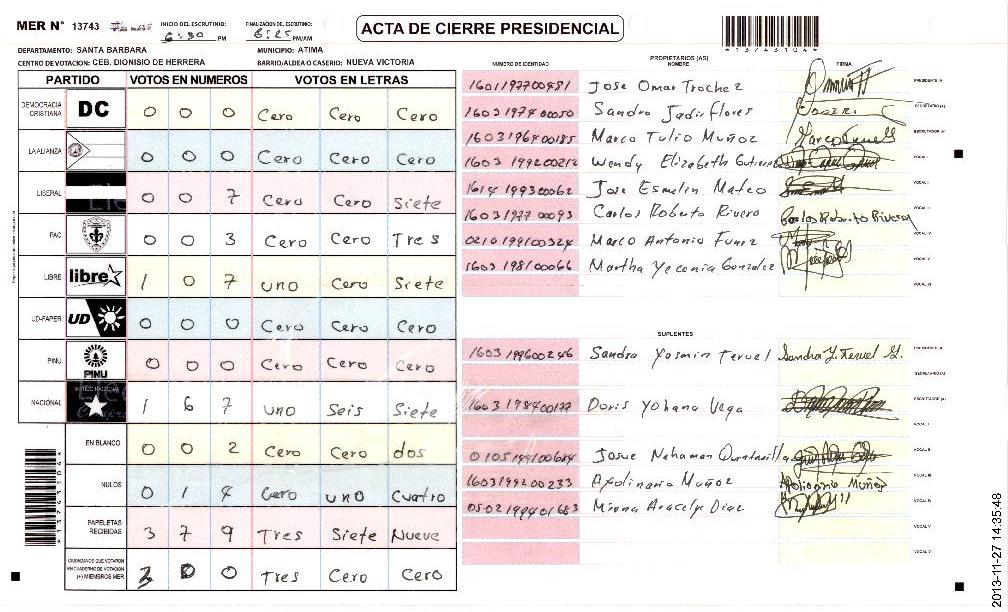 MER N° 13743 INICIO DEL ESCRUTINIO: 6:30 PM FINALIZACION DEL ESCRUTINIO: 6:25 PM/AM ACTA DE CIERRE PRESIDENCIAL
*13743104*
DEPARTAMENTO: SANTA BARBARA MUNICIPIO: ATIMA
CENTRO DE VOTACION: CEB. DIONISIO DE HERRERA BARRIO/ALDEA O CASERIO: NUEVA VICTORIA
PARTIDO VOTOS EN NUMEROS VOTOS EN LETRAS
DEMOCRACIA CRISTIANA DC 0 0 0 Cero Cero Cero
LA ALIANZA 0 0 0 Cero Cero Cero
LIBERAL 0 0 7 Cero Cero Siete
PAC 0 0 3 Cero Cero Tres
LIBRE libre 1 0 7 uno Cero Siete
UD-FAPER UD 0 0 0 Cero Cero Cero
PINU PINU 0 0 0 Cero Cero Cero
NACIONAL 1 6 7 uno Seis Siete
EN BLANCO 0 0 2 Cero Cero dos
NULOS 0 1 4 Cero uno Cuatro
PAPELETAS RECIBIDAS 3 7 9 Tres Siete Nueve
CIUDADANOS QUE VOTARON EN CUADERNO DE VOTACION (+) MIEMBROS MER 3 0 0 Tres Cero Cero
*13743104*
PROPIETARIOS (AS)
NUMERO DE IDENTIDAD NOMBRE FIRMA
1601197700481 Jose Omar Trochez PRESIDENTE (A)
1603197400050 Sandro Jadir flores SECRETARIO (A)
1603196400185 Marco Tulio Muñoz ESCRUTADOR (A)
1603199200212 Wendy Elizabeth VOCAL I
1614199300062 Jose Esmelin Mateo VOCAL II
1603197700093 Carlos Roberto Rivera Carlos Roberto Rivera VOCAL III
0210199100324 Marco Antonio Funez VOCAL IV
1603198100066 Martha Yecenia Gonzalez VOCAL V
VOCAL VI
SUPLENTES
1603199600246 Sandra Yasmin Teruel Sandra Y. Teruel G. PRESIDENTE (A)
SECRETARIO (A)
1603198400177 Doris Yohana Vega ESCRUTADOR (A)
VOCAL I
0105199100684 Josue Nahaman VOCAL II
1603199200233 Apolinario Muñoz Apolinario Muñoz VOCAL III
0502199401683 Mirna Aracely Diaz VOCAL IV
VOCAL V
VOCAL VI
2013-11-27 14:35:48